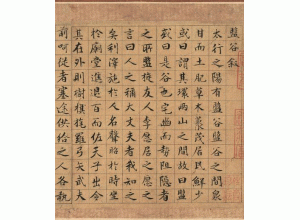 盤谷敘
太行之陽有盤谷盤谷之間泉
甘而土肥草木藂茂居民鮮少
或曰謂其環兩山之間故曰盤
或曰是谷也宅幽而勢阻隱者
之所盤旋友人李愿居之愿之
言曰人之稱大丈夫者我知之
矣利澤施於人名聲昭於時坐
於廟堂進退百而佐天子出令
其在外則樹旗旄羅弓矢武夫
前呵從者塞途供給之人各執